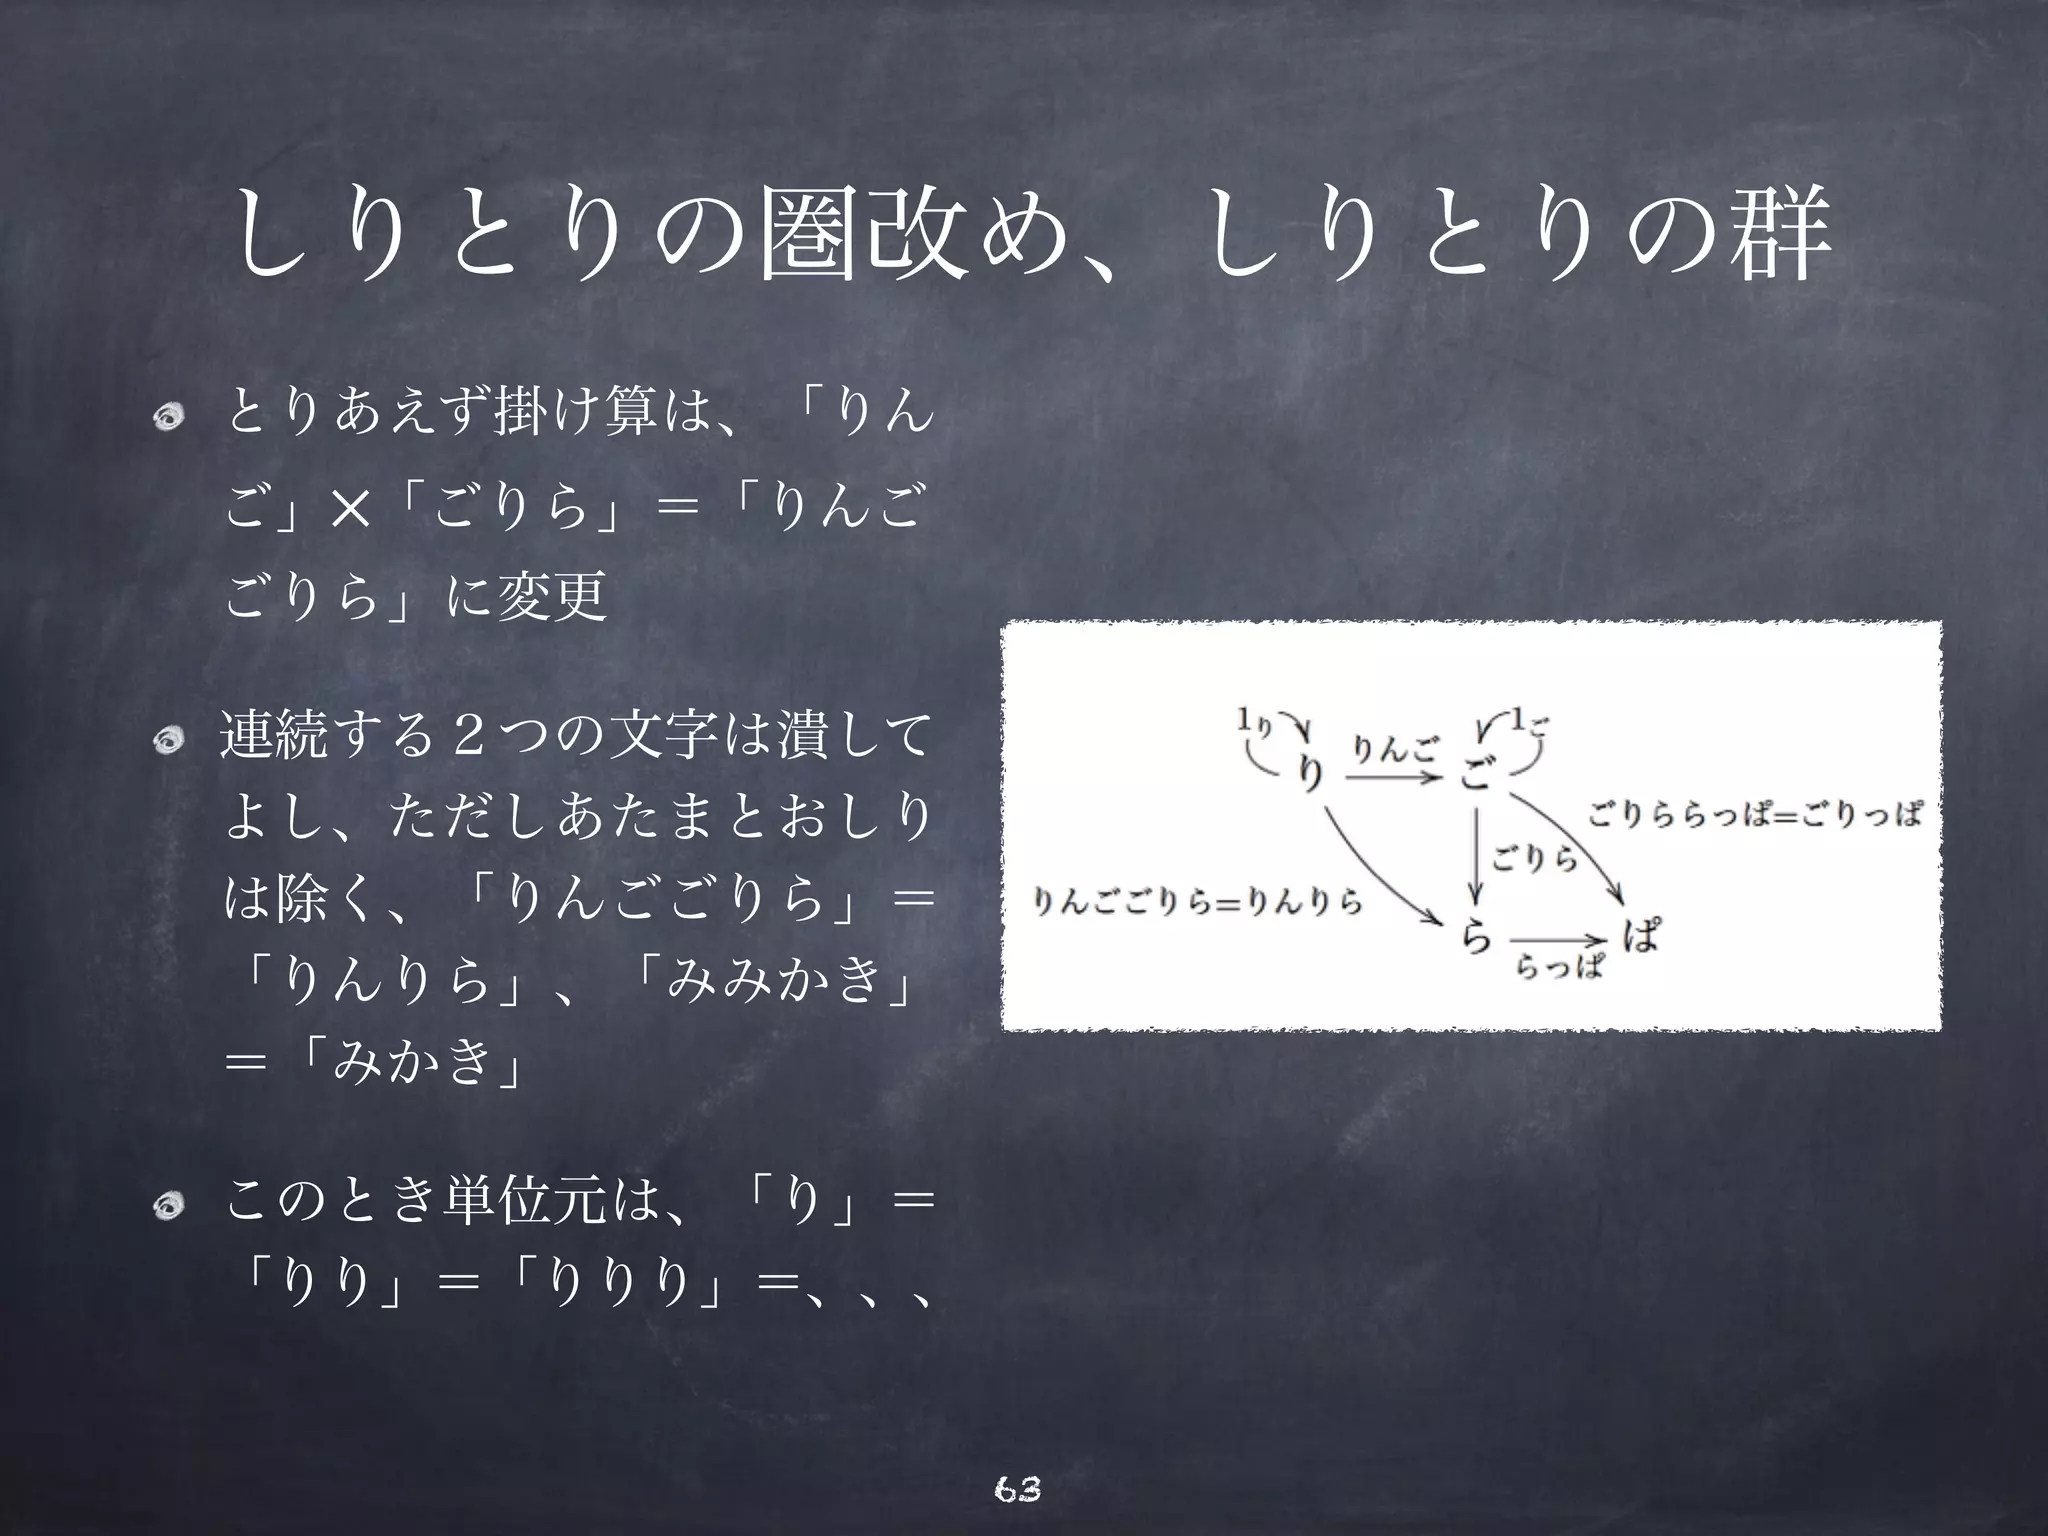 しりとりの圏改め、しりとりの群
とりあえず掛け算は、「りん
ご」×「ごりら」＝「りんご
ごりら」に変更
連続する２つの文字は潰して
よし、ただしあたまとおしり
は除く、「りんごごりら」＝
「りんりら」、「みみかき」
＝「みかき」
このとき単位元は、「り」＝
「りり」＝「りりり」＝、、、
1り
1ご
りんご
り
ご
ごりららっぱ=ごりっぱ
ごりら
りんごごりら=りんりら
ら
ぱ
らっぱ
63